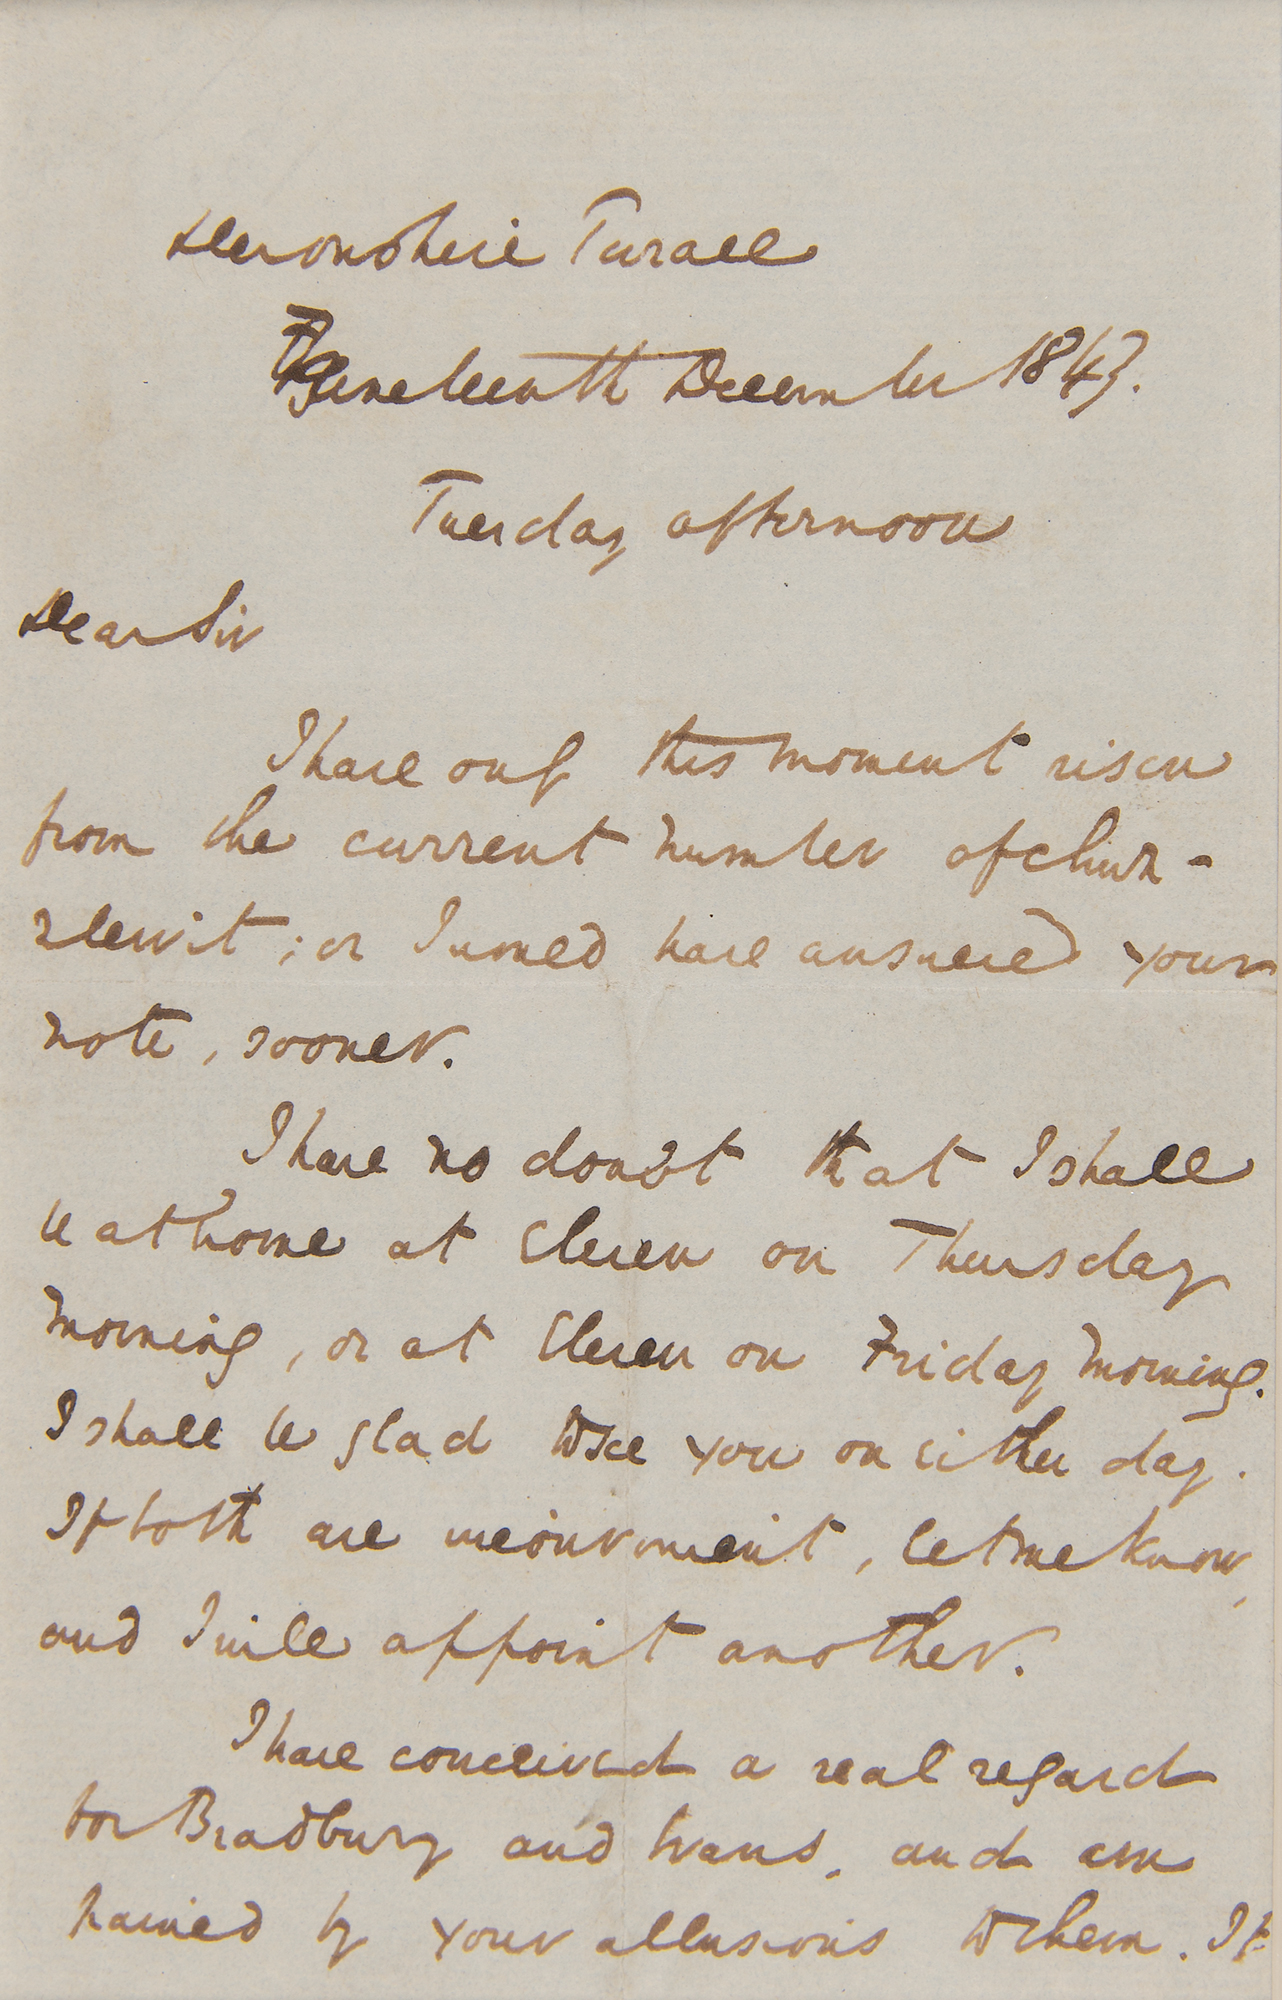 Devonshire Terrace
Nineteenth December 1843.
Tuesday afternoon
Dear Sir
I have only this moment risen
from the current number of Chuz-
zlewit; or I would have answered your
note, sooner.
I have no doubt that I shall
be at home at Eleven on Thursday
morning, or at Eleven on Friday morning.
I shall be glad to see you on either day.
If both are inconvenient, let me know,
and I will appoint another.
I have conceived a real regard
for Bradbury and Evans, and am
pained by your allusions to them. If